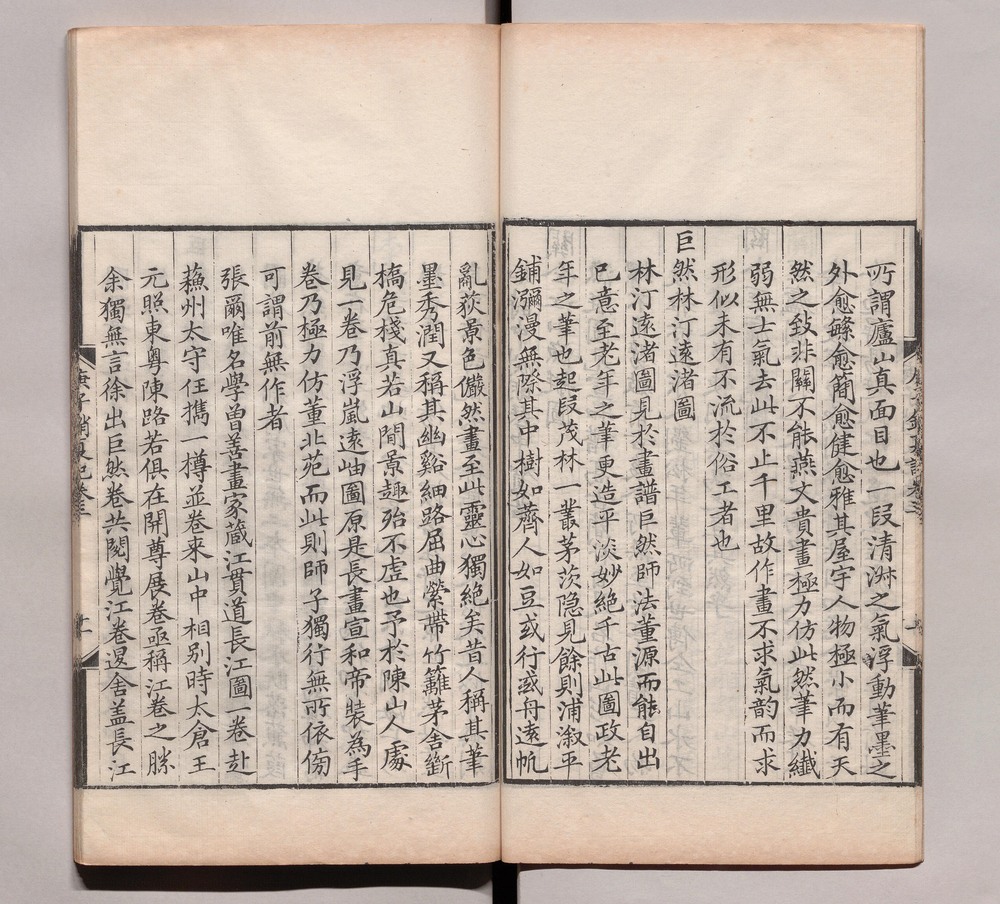 所謂廬山真面目也一段清潤之氣浮動筆墨之
外愈緐愈簡愈健愈雅其屋宇人物極小而有天
然之致非關不能燕文貴畫極力仿此然筆力纖
弱無士氣去此不止千里故作畫不求氣韵而求
形似未有不流於俗工者也
巨然林汀遠渚圖
林汀遠渚圖見於畫譜巨然師法董源而能自出
己意至老年之筆更造平淡妙絶千古此圖政老
年之筆也起段茂林一叢茅茨隐見餘則浦溆平
鋪瀰漫無際其中樹如薺人如豆或行或舟遠帆
亂荻景色儼然畫至此靈心獨絶矣昔人稱其筆
墨秀潤又稱其幽谿細路屈曲縈帶竹籬茅舍斷
橋危棧真若山間景趣殆不虛也予於陳山人處
見一卷乃浮嵐遠岫圖原是長畫宣和帝裝為手
卷乃極力仿董北苑而此則師子獨行無所依傍
可謂前無作者
張爾唯名學曾善畫家蔵江貫道長江圖一卷赴
蘓州太守任攜一樽並卷來山中相别時太倉王
元照東粤陳路若俱在開尊展卷亟稱江卷之勝
余獨無言徐出巨然卷共閱覺江卷邊舍盖長江
庚子銷夏記卷三
十一